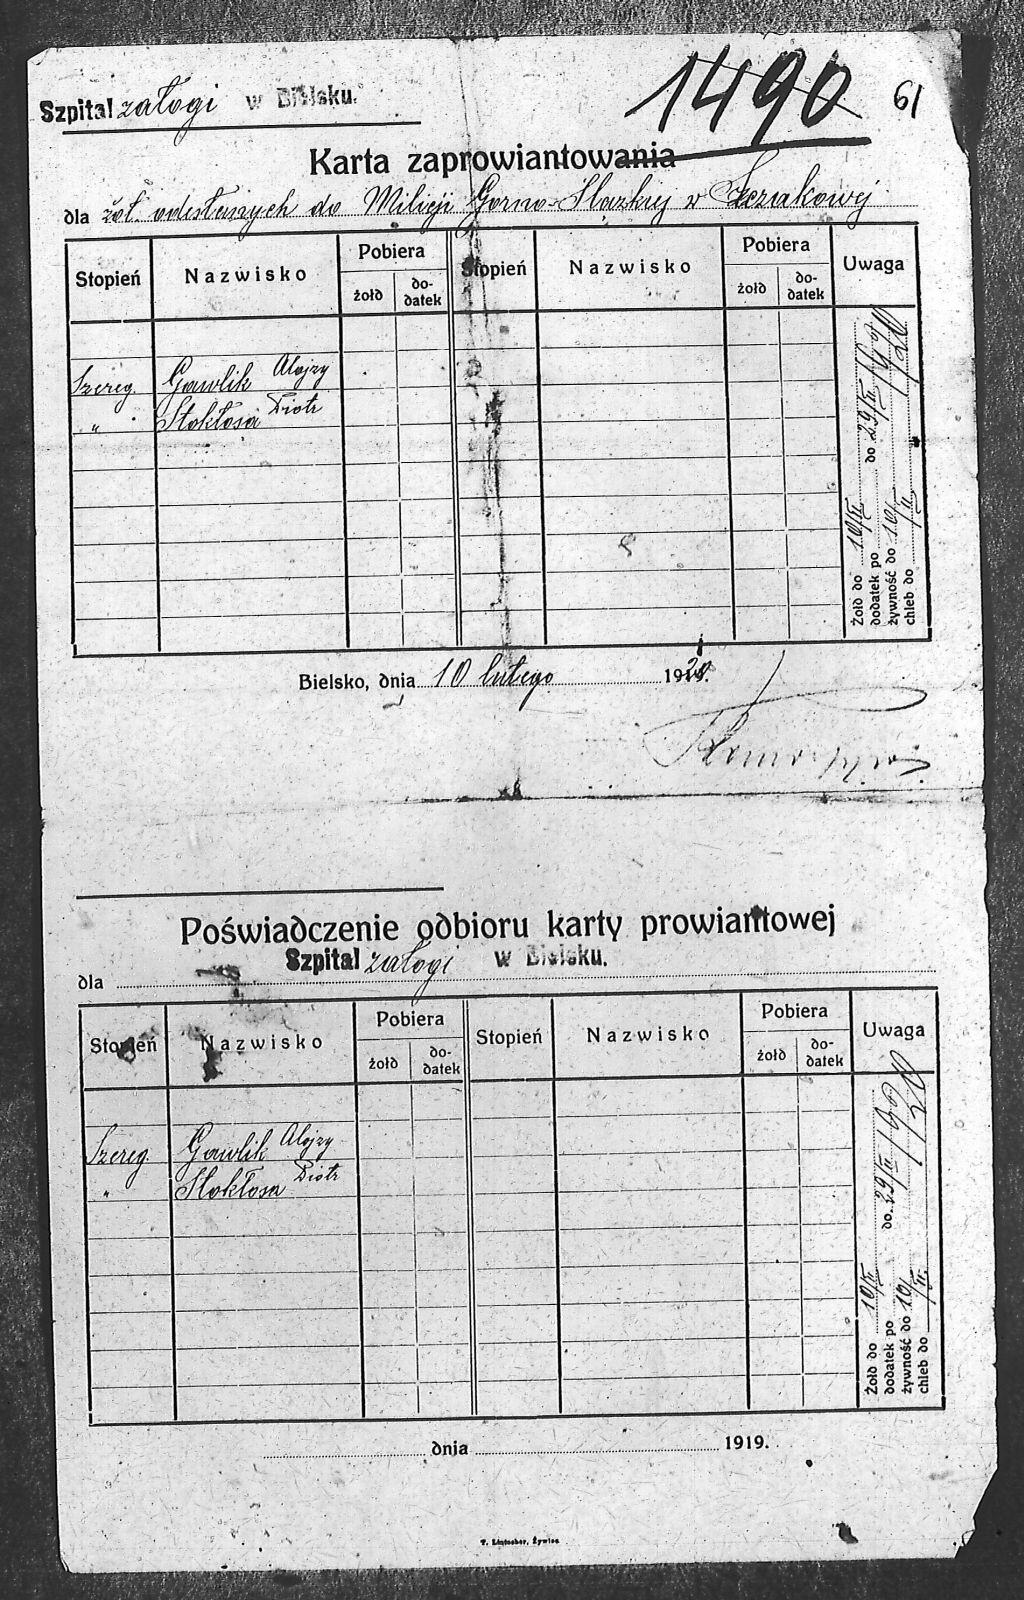 1490 61
Szpital załogi w Bielsku.
Karta zaprowiantowania
dla żoł. odesłanych do Milicji Gorno-Slazkiej w Szczakowej
Stopień Nazwisko Pobiera Stopień Nazwisko Pobiera Uwaga
żołd do-datek żołd do-datek
Szereg. Gawlik Alojzy
„ Stokłosa Piotr
Żołd do 10/II do 29/II 1920
dodatek po
żywność do 10/II
chleb do
Bielsko, dnia 10 lutego 1920.
Poświadczenie odbioru karty prowiantowej
Szpital załogi w Bielsku.
dla
Stopień Nazwisko Pobiera Stopień Nazwisko Pobiera Uwaga
żołd do-datek żołd do-datek
Szereg. Gawlik Alojzy
„ Stokłosa Piotr
Żołd do 10/II do 29/II 1920
dodatek po
żywność do 10/II
chleb do
dnia 1919.
Żywiec